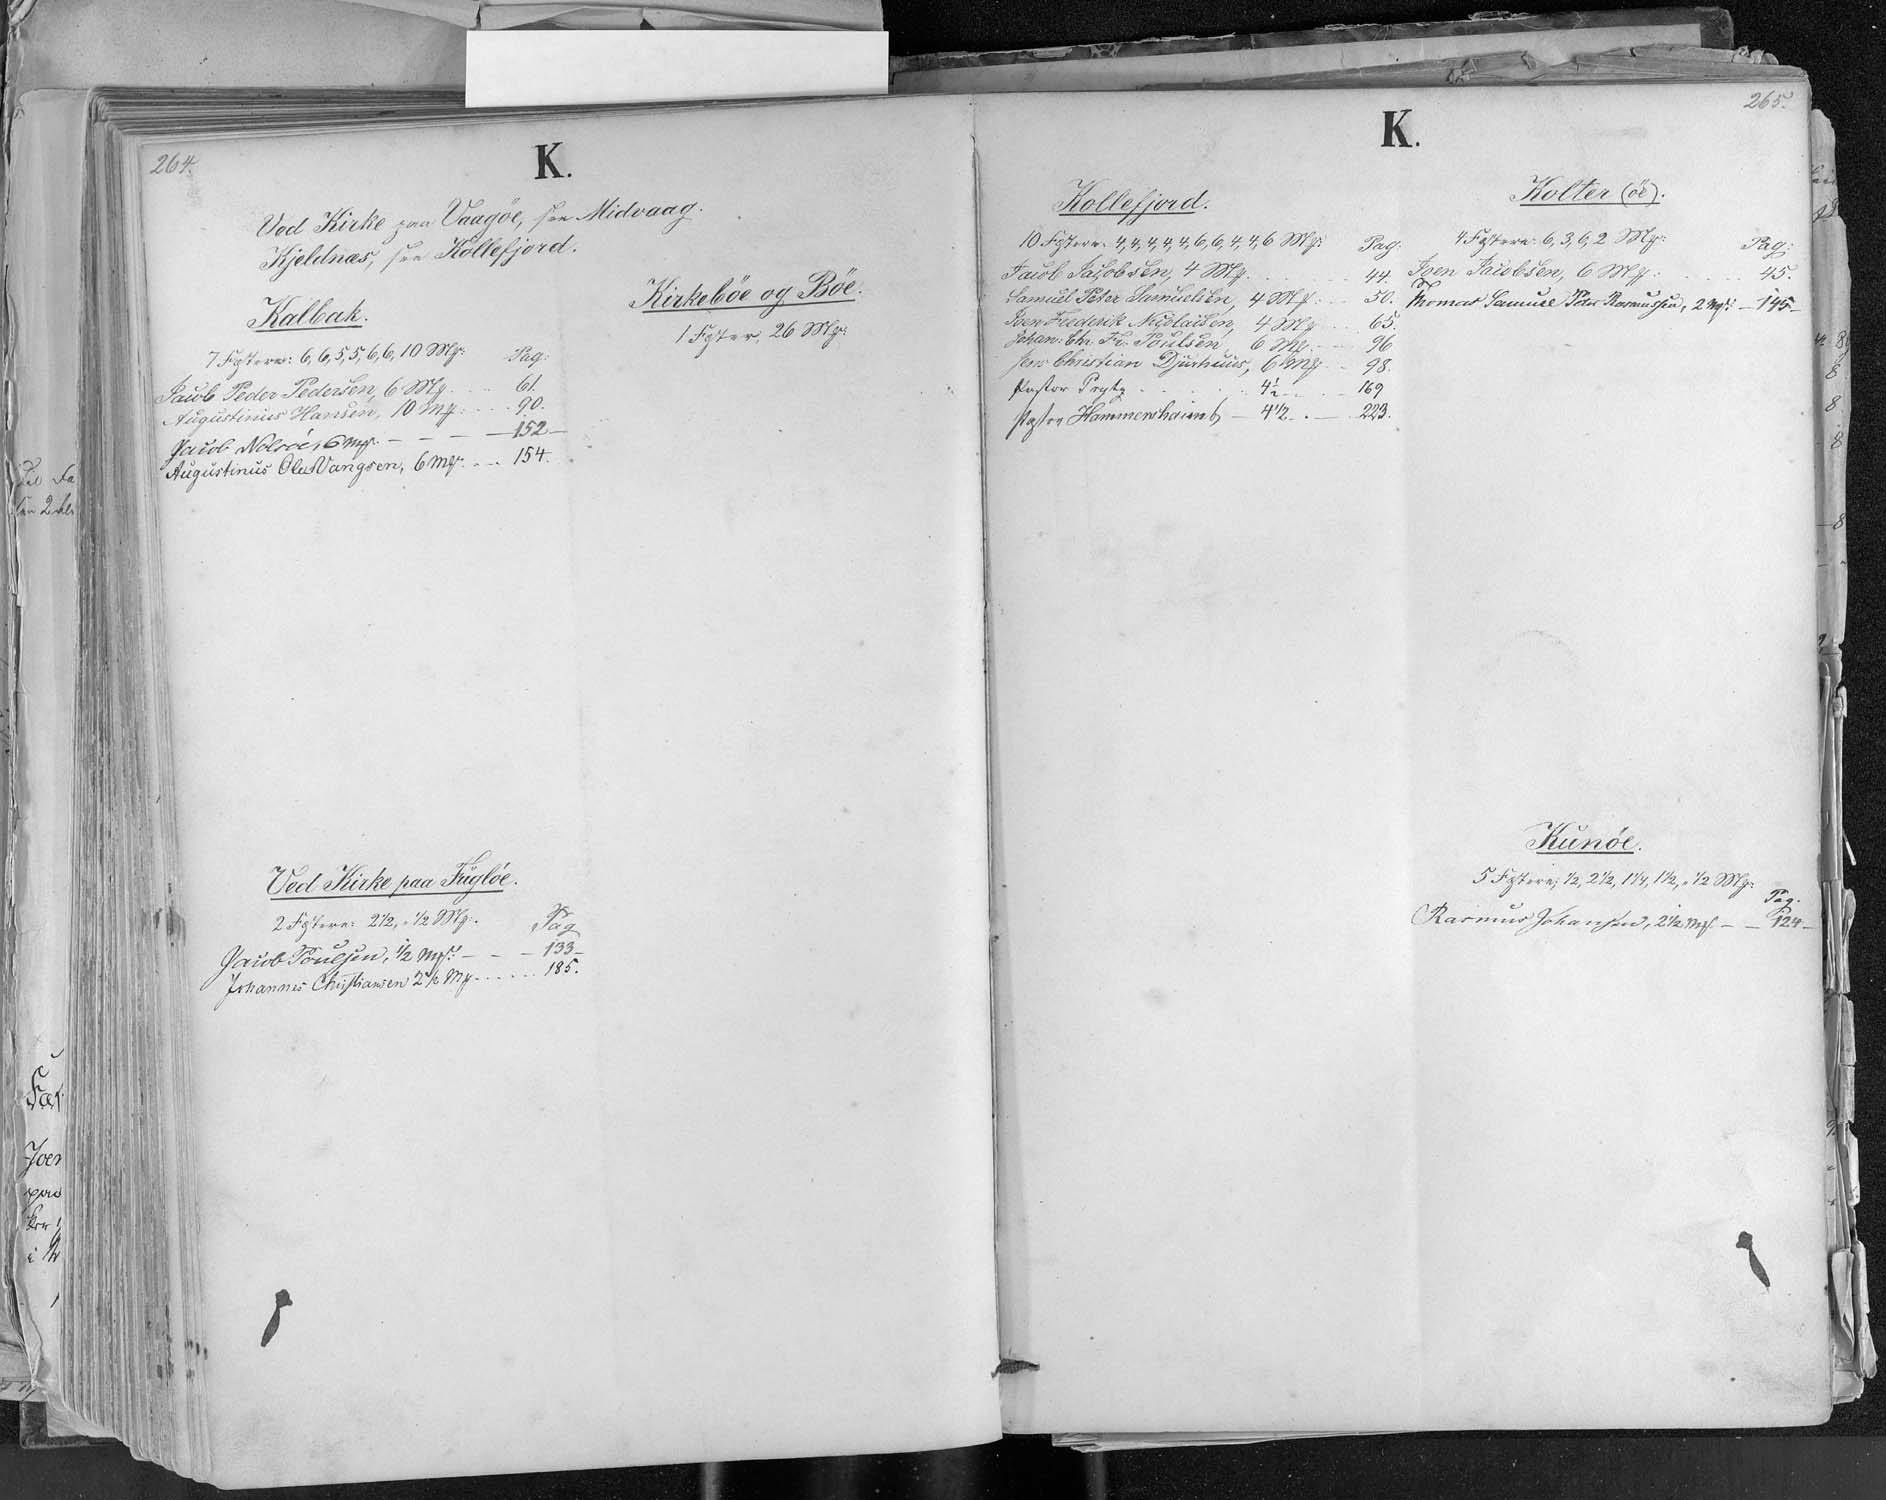 264.
K.
Ved Kirke paa Vaagöe, see Midvaag.
Kjeldnæs, see Kollefjord.
Kalbak.
7 Fæstere: 6, 6, 5, 5, 6, 6, 10 Mk: Pag:
Jacob Peder Pedersen, 6 Mk. 61.
Augustinus Hansen, 10 Mk: 90.
Jacob Nolsöe, 6 Mk. 152
Augustinus Olu Vangsen, 6 Mk. 154.
Kirkeböe og Böe.
1 Fæster, 26 Mk:
Ved Kirke paa Fuglöe.
2 Fæstere: 2 1/2, 1/2 Mk: Pag
Jacob Poulsen, 1/2 Mk: 133
Johannes Christiansen 2 1/2 Mk 185.
265.
K.
Kollefjord.
10 Fæstere: 4, 4, 4, 4, 4, 6, 6, 4, 4, 6 Mk: Pag:
Jacob Jacobsen, 4 Mk. 44.
Samuel Peter Samuelsen, 4 Mk: 50.
Joen Frederik Nicolaisen, 4 Mk 65.
Johan: Chr. Fr. Poulsen 6 Mk. 96
Jens Christian Djurhuus, 6 Mk 98.
Pastor Prytz 4 1/2 169
Pastor Hammershaimb 4 1/2 223.
Kolter (öe).
4 Fæstere: 6, 3, 6, 2 Mk: Pag:
Joen Jacobsen, 6 Mk: 45.
Thomas Samuel Peter Rasmussen, 2 Mk: 145
Kunöe.
5 Fæstere; 1/2, 2 1/2, 1 1/4, 1 1/2, 1/2 Mk: Pag.
Rasmus Johansen, 2 1/2 Mk 124